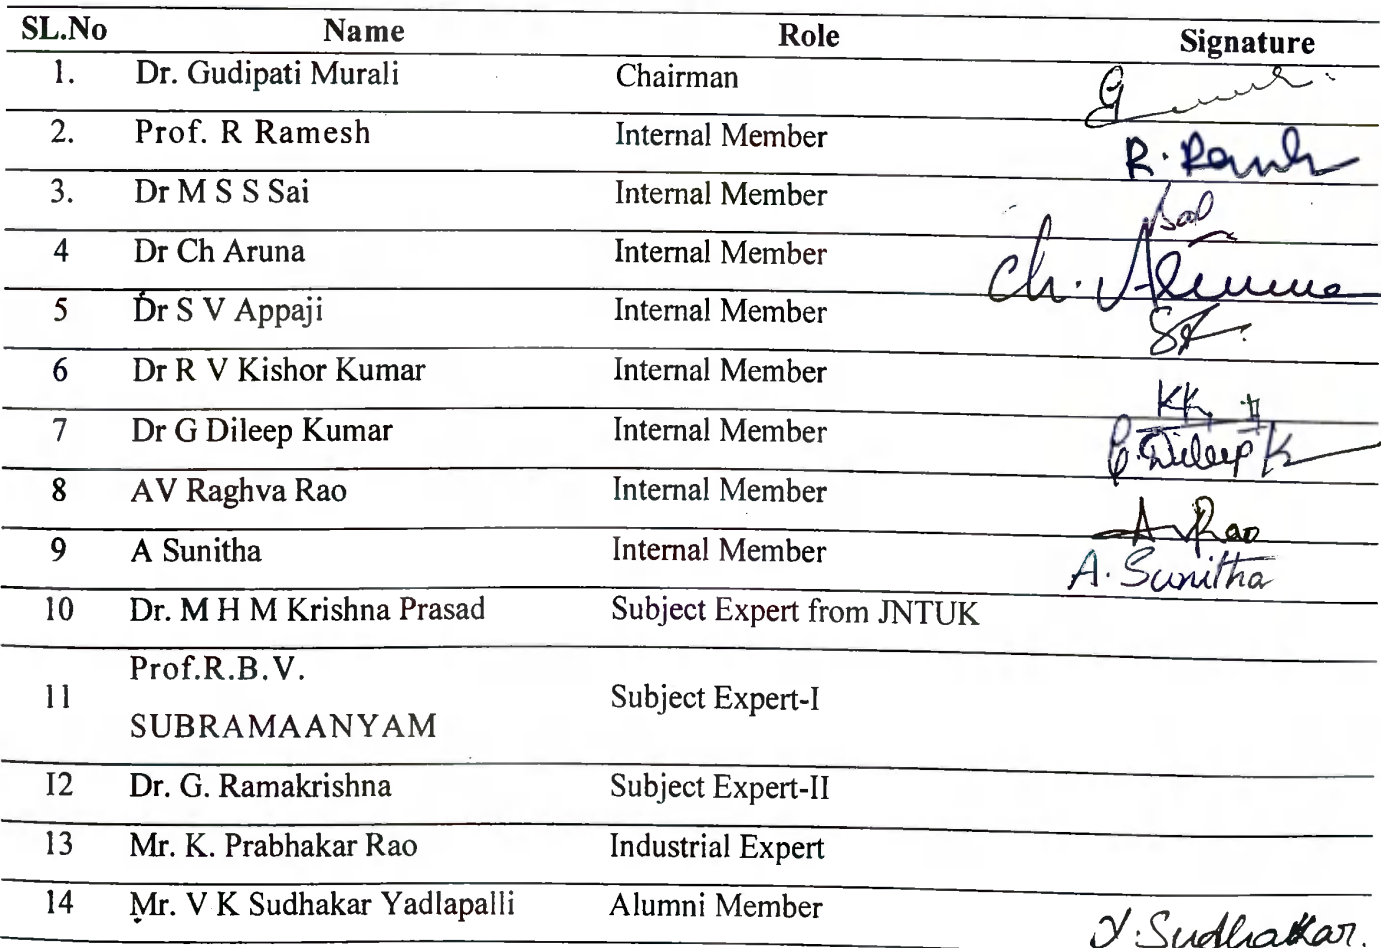 SL.No Name Role Signature
1. Dr. Gudipati Murali Chairman
2. Prof. R Ramesh Internal Member R. Ramesh
3. Dr M S S Sai Internal Member Sai
4 Dr Ch Aruna Internal Member Ch. Aruna
5 Dr S V Appaji Internal Member
6 Dr R V Kishor Kumar Internal Member KK
7 Dr G Dileep Kumar Internal Member G. Dileep K
8 AV Raghva Rao Internal Member A Rao
9 A Sunitha Internal Member A. Sunitha
10 Dr. M H M Krishna Prasad Subject Expert from JNTUK
Prof.R.B.V.
11 Subject Expert-I
SUBRAMAANYAM
12 Dr. G. Ramakrishna Subject Expert-II
13 Mr. K. Prabhakar Rao Industrial Expert
14 Mr. V K Sudhakar Yadlapalli Alumni Member Y. Sudhakar.